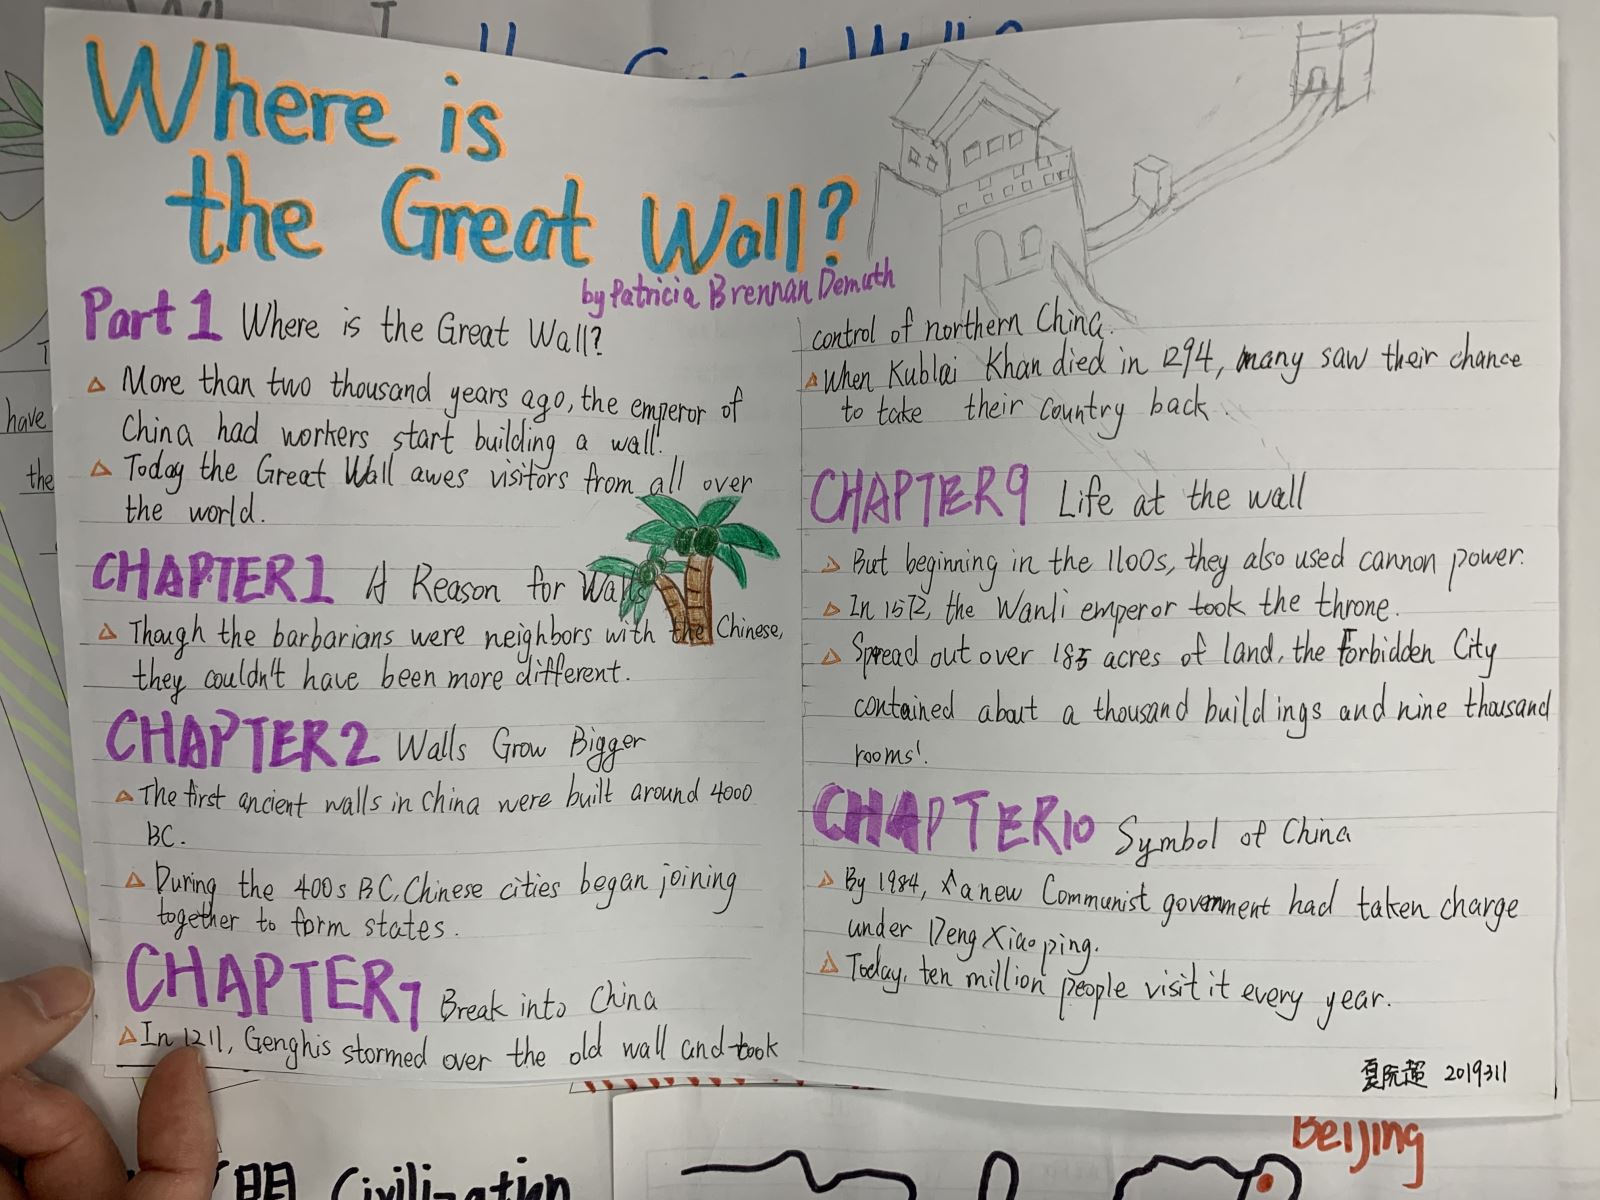 Where is
the Great Wall?
by Patricia Brennan Demuth
Part 1 Where is the Great Wall?
△ More than two thousand years ago, the emperor of
China had workers start building a wall.
△ Today the Great Wall awes visitors from all over
the world.
CHAPTER 1 A Reason for Walls
△ Though the barbarians were neighbors with the Chinese,
they couldn't have been more different.
CHAPTER 2 Walls Grow Bigger
△ The first ancient walls in China were built around 4000
BC.
△ During the 400s BC, Chinese cities began joining
together to form states.
CHAPTER 7 Break into China
△ In 1211, Genghis stormed over the old wall and took
control of northern China.
△ When Kublai Khan died in 1294, many saw their chance
to take their country back.
CHAPTER 9 Life at the wall
△ But beginning in the 1100s, they also used cannon power.
△ In 1572, the Wanli emperor took the throne.
△ Spread out over 185 acres of land, the Forbidden City
contained about a thousand buildings and nine thousand
rooms!
CHAPTER 10 Symbol of China
△ By 1984, a new Communist government had taken charge
under Deng Xiaoping.
△ Today, ten million people visit it every year.
夏阮超 2019311
have
the
Beijing
明 Civilization